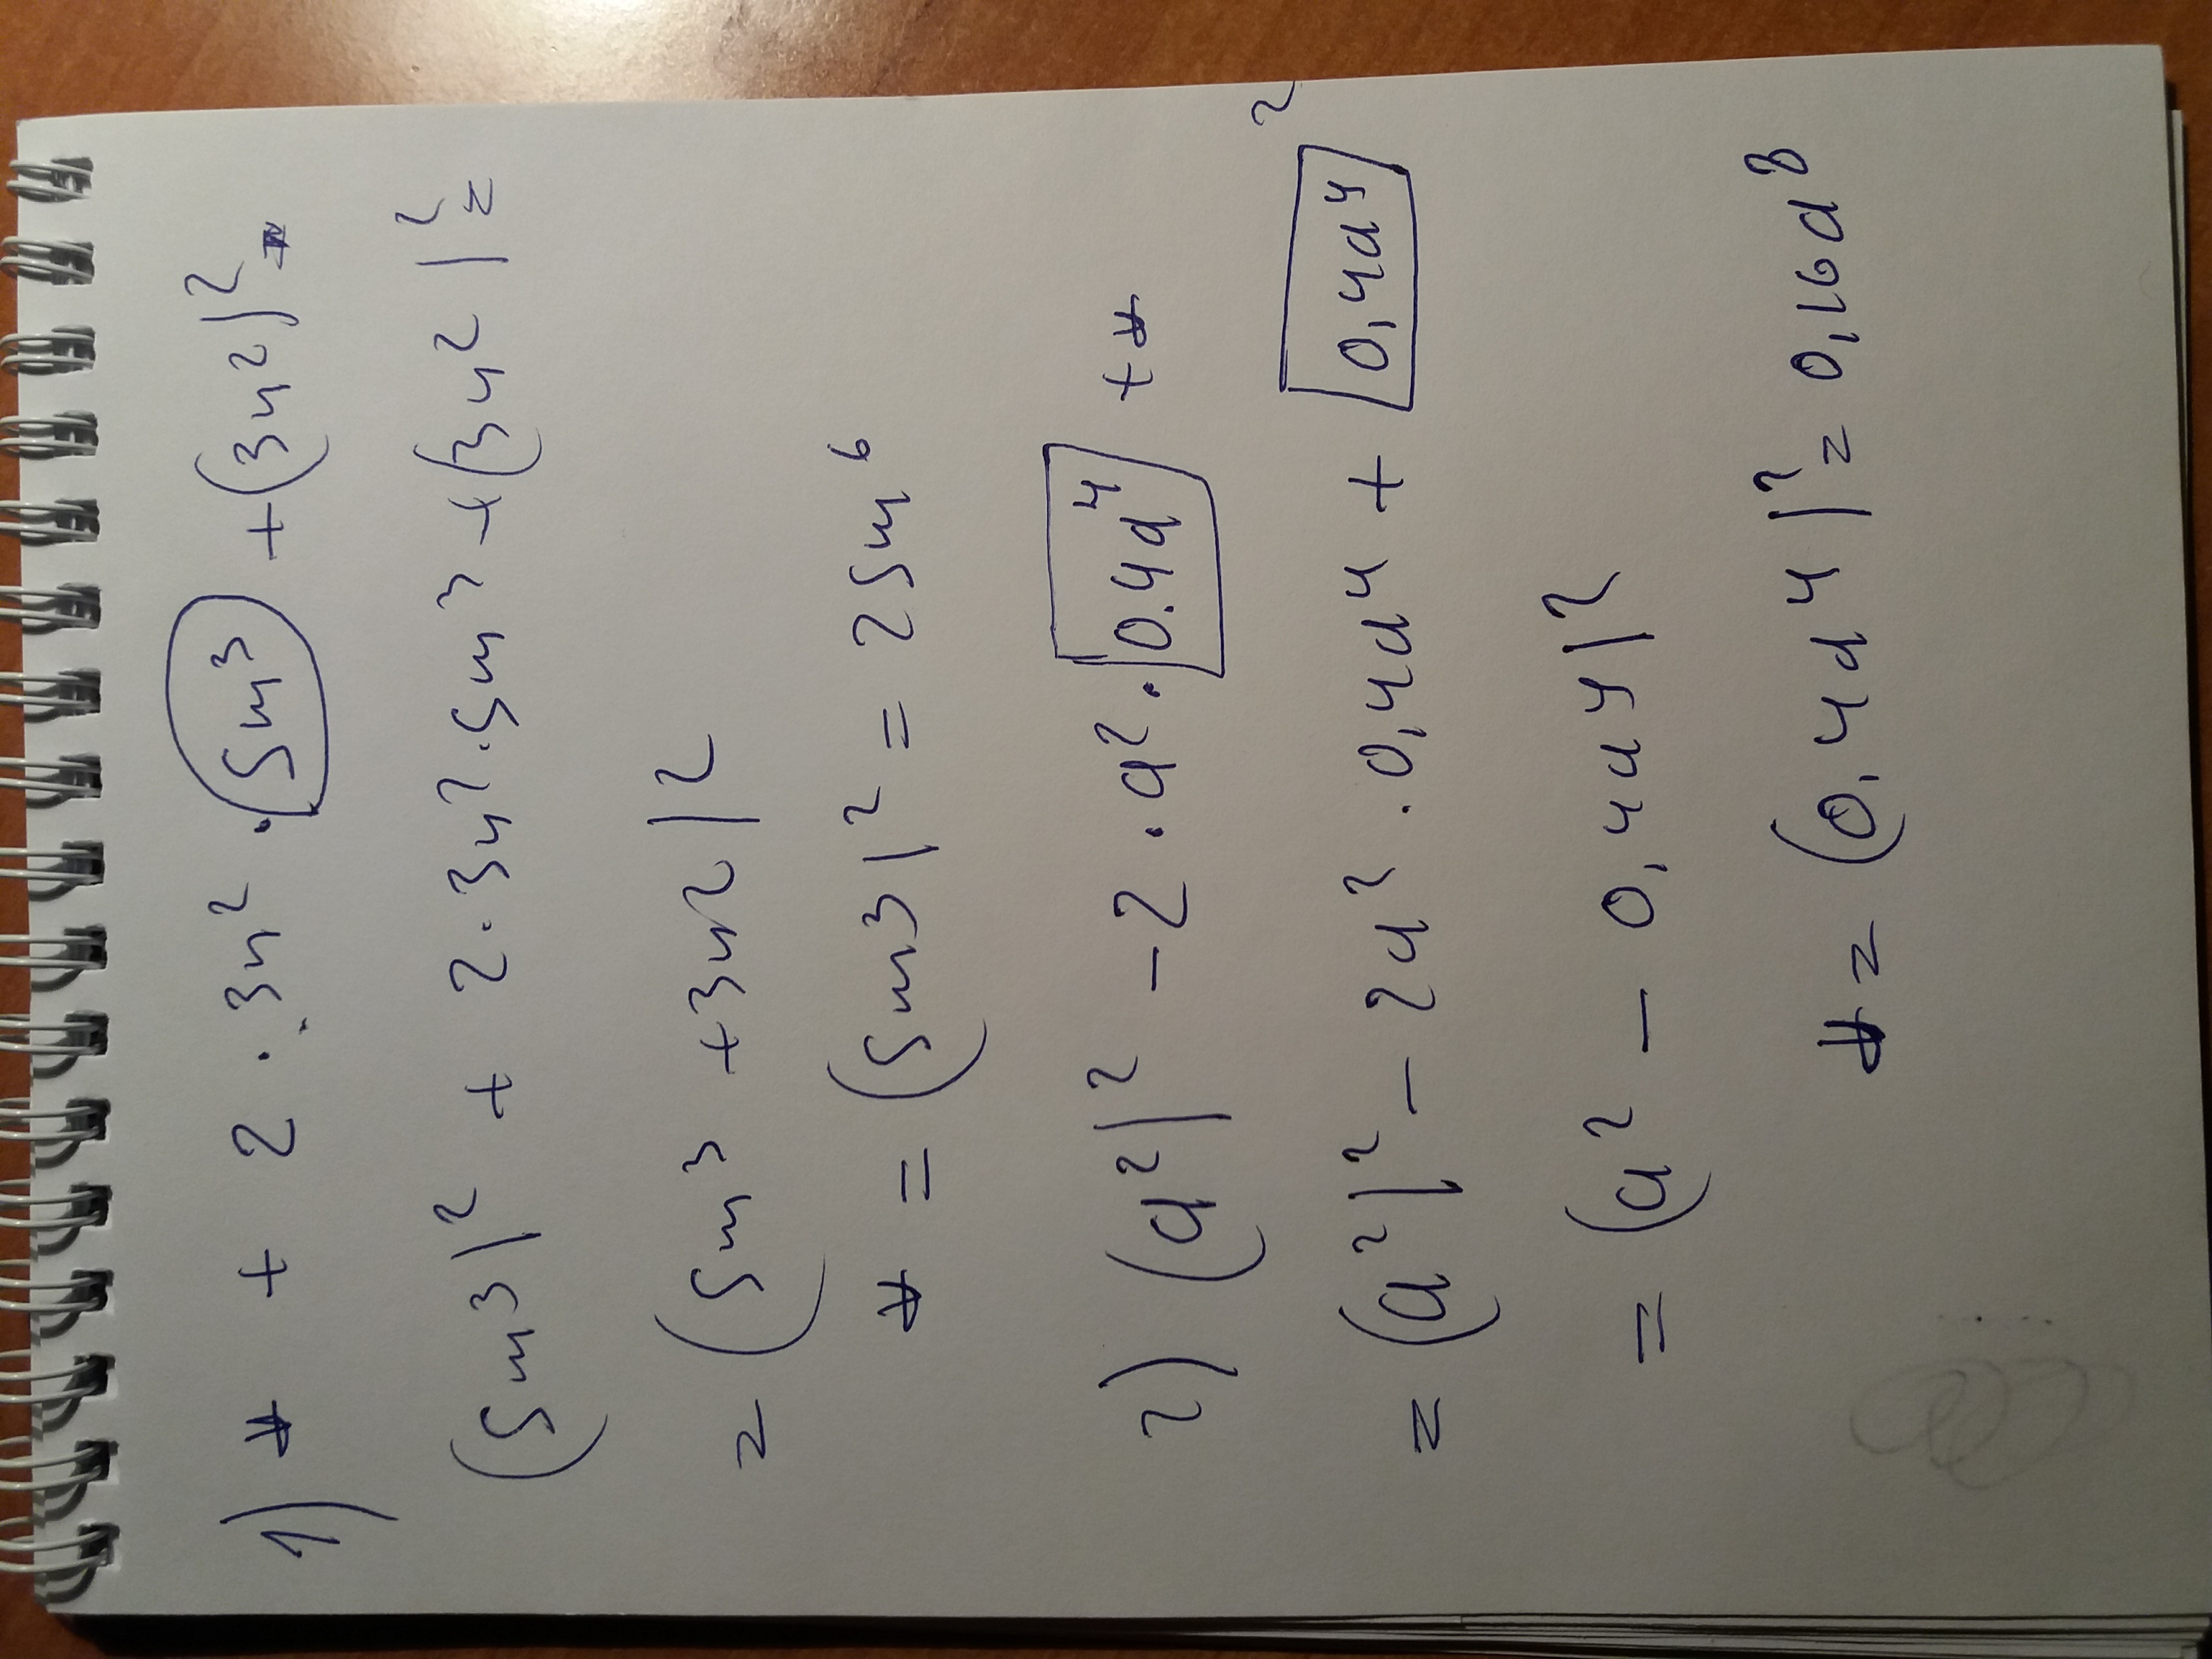 1) * + 2 · 3n² · 5m³ + (3n²)² =
(5m³)² + 2·3n²·5m³ + (3n²)² =
= (5m³ + 3n²)²
* = (5m³)² = 25m⁶
2) (a²)² - 2 · a² · 0.4a⁴ + *
= (a²)² - 2a² · 0,4a⁴ + 0,4a⁴²
= (a² - 0,4a⁴)²
* = (0,4a⁴)² = 0,16a⁸